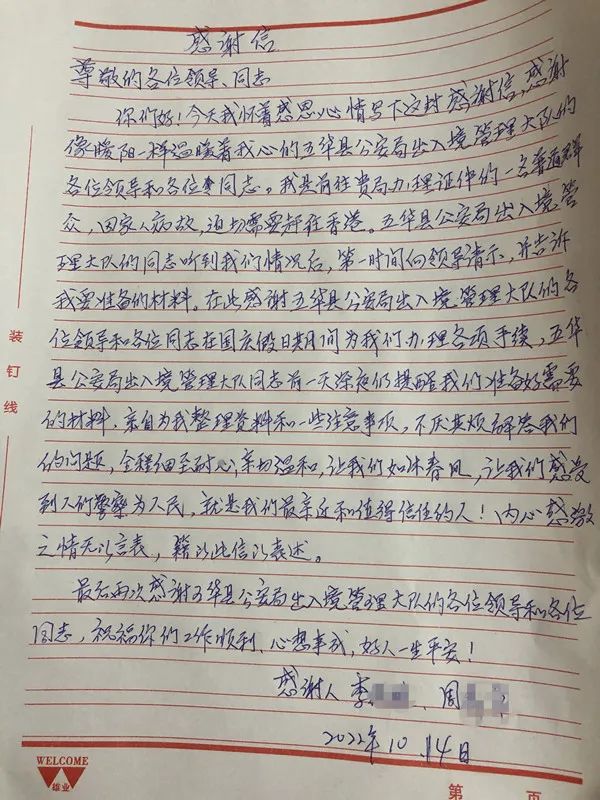 感谢信
尊敬的各位领导、同志
你们好!今天我怀着感恩心情写下这封感谢信,感谢
像暖阳一样温暖着我心的五华县公安局出入境管理大队的
各位领导和各位同志。我是前往贵局办理证件的一名普通群
众,因家人病故,迫切需要赶往香港。五华县公安局出入境管
理大队的同志听到我们情况后,第一时间向领导请示,并告诉
我要准备的材料。在此感谢五华县公安局出入境管理大队的各
位领导和各位同志在国庆假日期间为我们办理各项手续,五华
县公安局出入境管理大队同志前一天深夜仍提醒我们准备好需要
的材料,亲自为我整理资料和一些注意事项,不厌其烦解答我们
的问题,全程细至耐心,亲切温和,让我们如沐春风,让我们感受
到人们警察为人民,就是我们最亲近和值得信任的人!内心感激
之情无以言表,籍以此信以表述。
最后再次感谢五华县公安局出入境管理大队的各位领导和各位
同志,祝福你们工作顺利、心想事成,好人一生平安!
感谢人 李 、周
2022年10.14日
装
钉
线
WELCOME
雄业
第 页